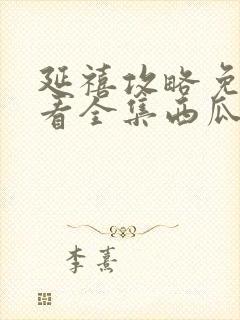 延禧攻略免
看全集西瓜
李熹